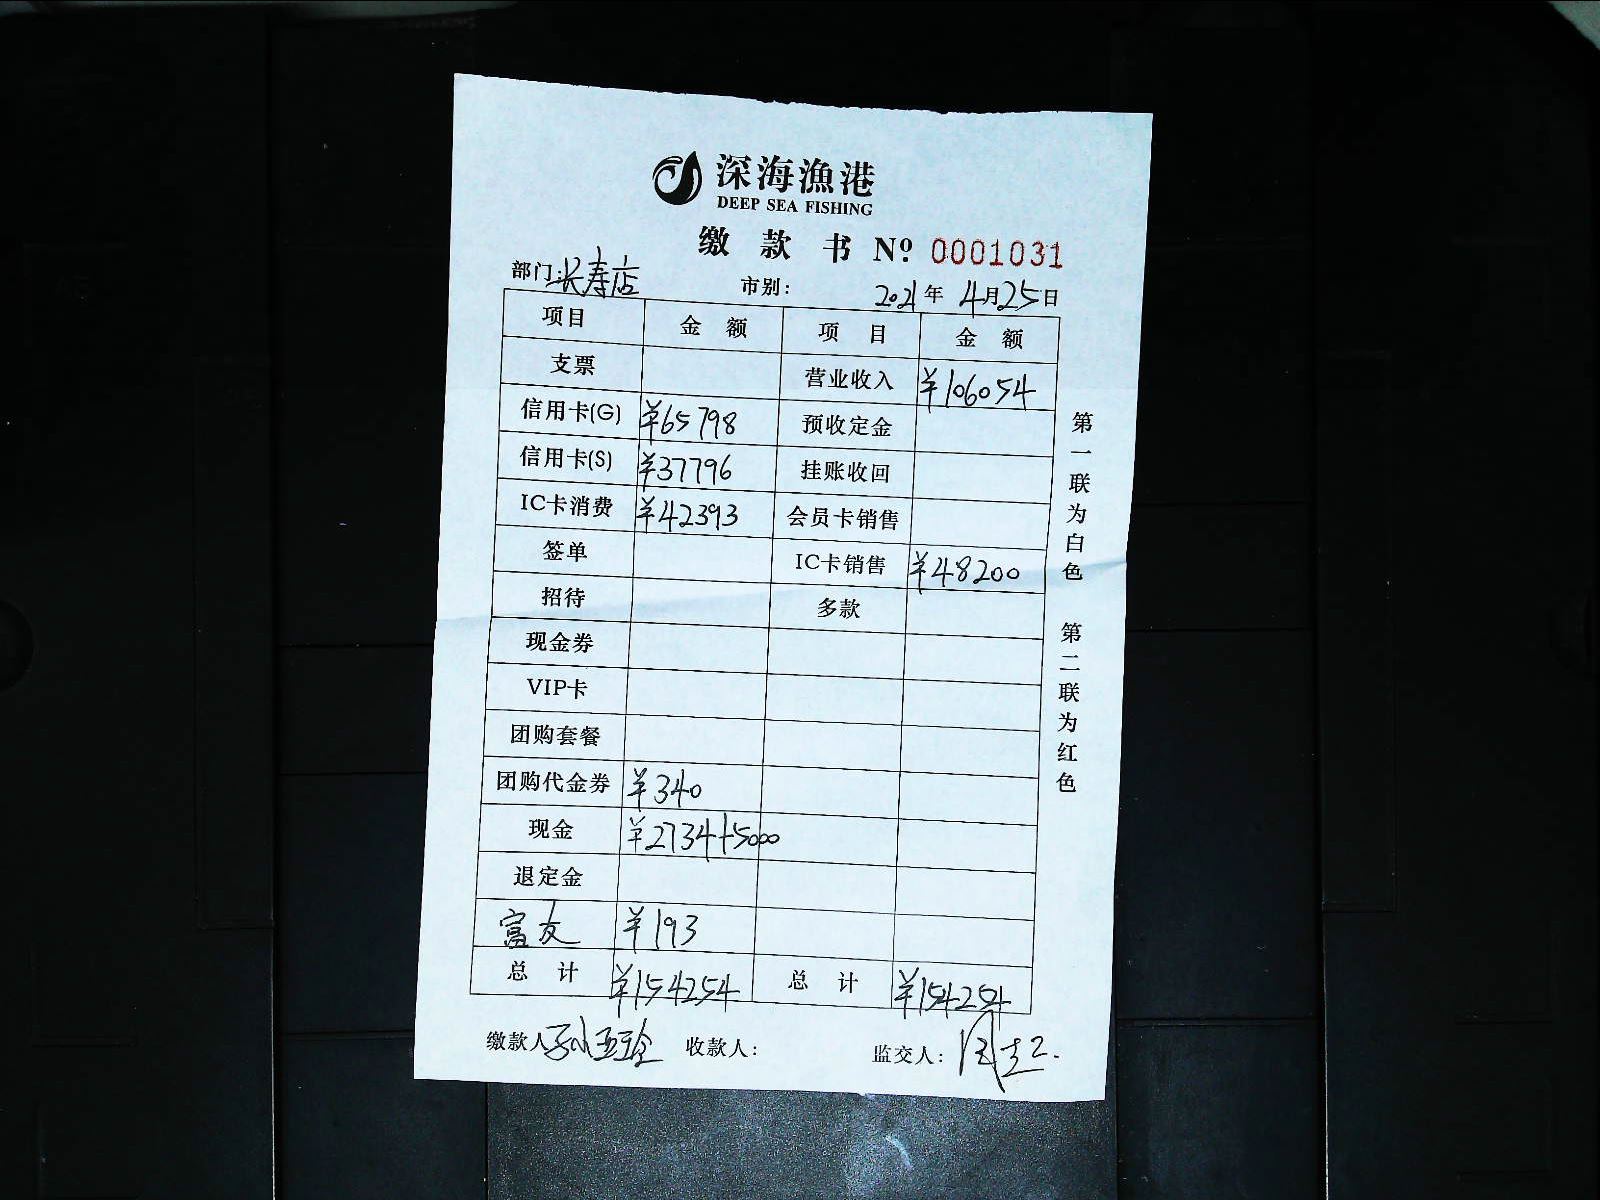 深海漁港
DEEP SEA FISHING
缴款书 Nº 0001031
部门:长寿店 市别: 2021年4月25日
项目 金额 项目 金额
支票 营业收入 ¥106054
信用卡(G) ¥65798 预收定金
信用卡(S) ¥37796 挂账收回
IC卡消费 ¥42393 会员卡销售
签单 IC卡销售 ¥48200
招待 多款
现金券
VIP卡
团购套餐
团购代金券 ¥340
现金 ¥2734+5000
退定金
富友 ¥193
总计 ¥154254 总计 ¥154254
缴款人 收款人: 监交人:
第一联为白色 第二联为红色